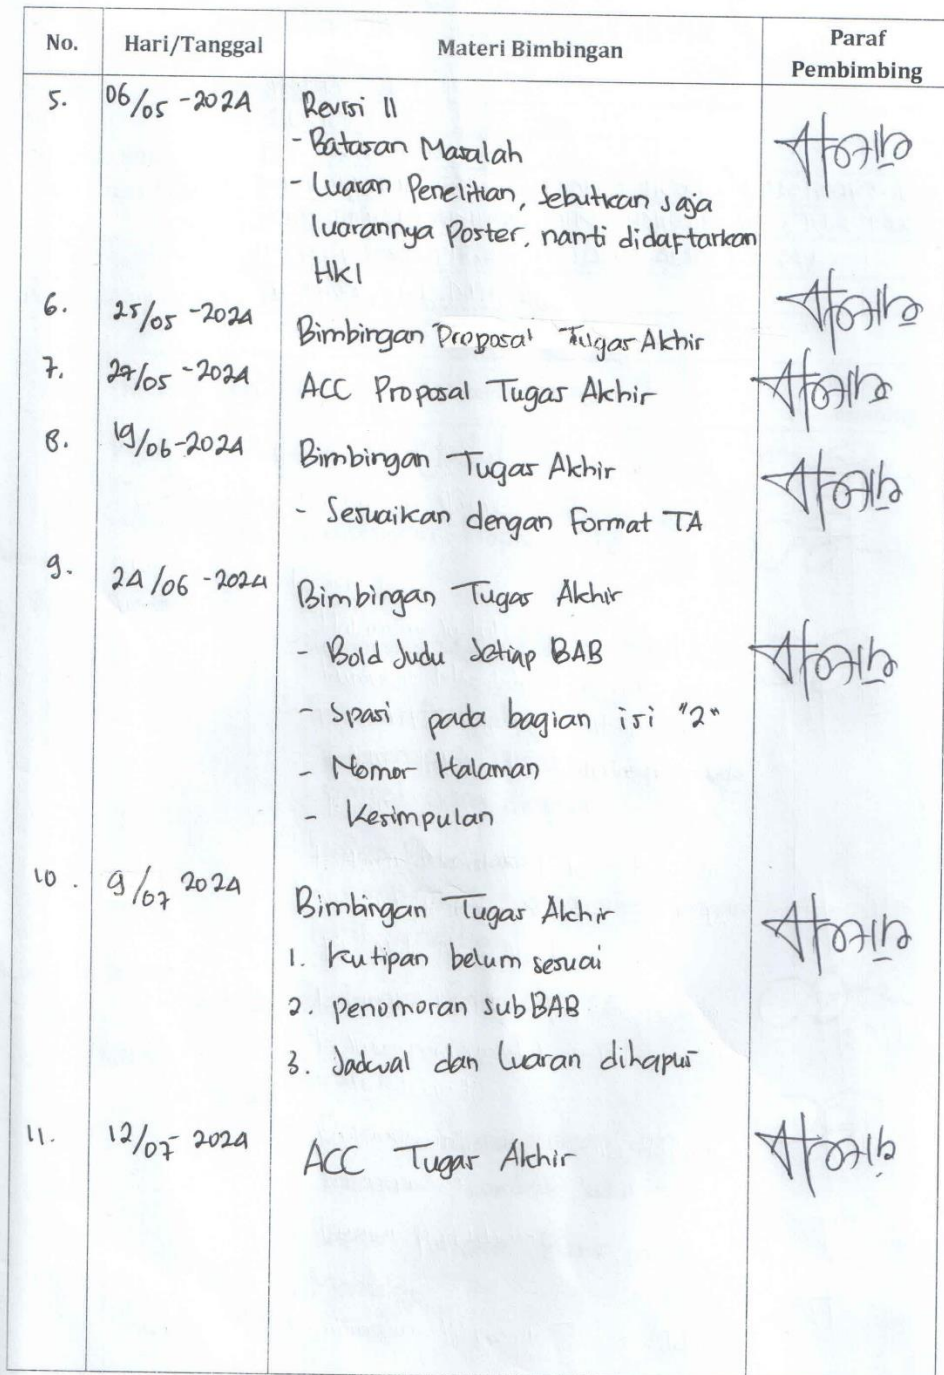 No. Hari/Tanggal Materi Bimbingan Paraf Pembimbing
5. 06/05-2024 Revisi II
- Batasan Masalah
- Luaran Penelitian, Sebutkan saja
luarannya Poster, nanti didaftarkan
HKI
6. 25/05-2024 Bimbingan Proposal Tugas Akhir
7. 27/05-2024 ACC Proposal Tugas Akhir
8. 19/06-2024 Bimbingan Tugas Akhir
- Sesuaikan dengan Format TA
9. 24/06-2024 Bimbingan Tugas Akhir
- Bold Judu Setiap BAB
- Spasi pada bagian isi "2"
- Nomor Halaman
- Kesimpulan
10. 9/07 2024 Bimbingan Tugas Akhir
1. Kutipan belum sesuai
2. Penomoran subBAB
3. Jadwal dan Luaran dihapus
11. 12/07-2024 ACC Tugas Akhir